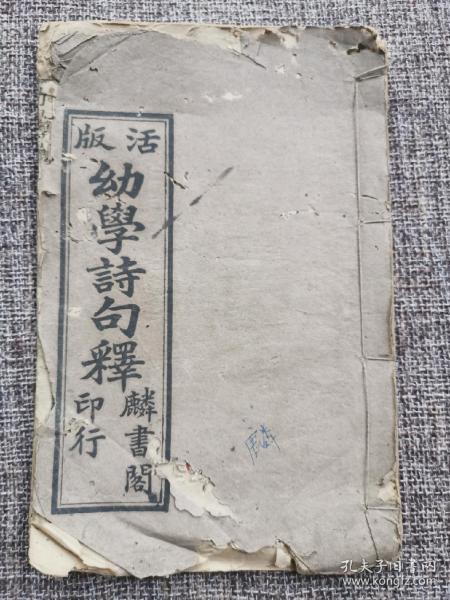 活版
幼學詩句釋
麟書閣
印行
孔夫子旧书网
www.kongfz.com